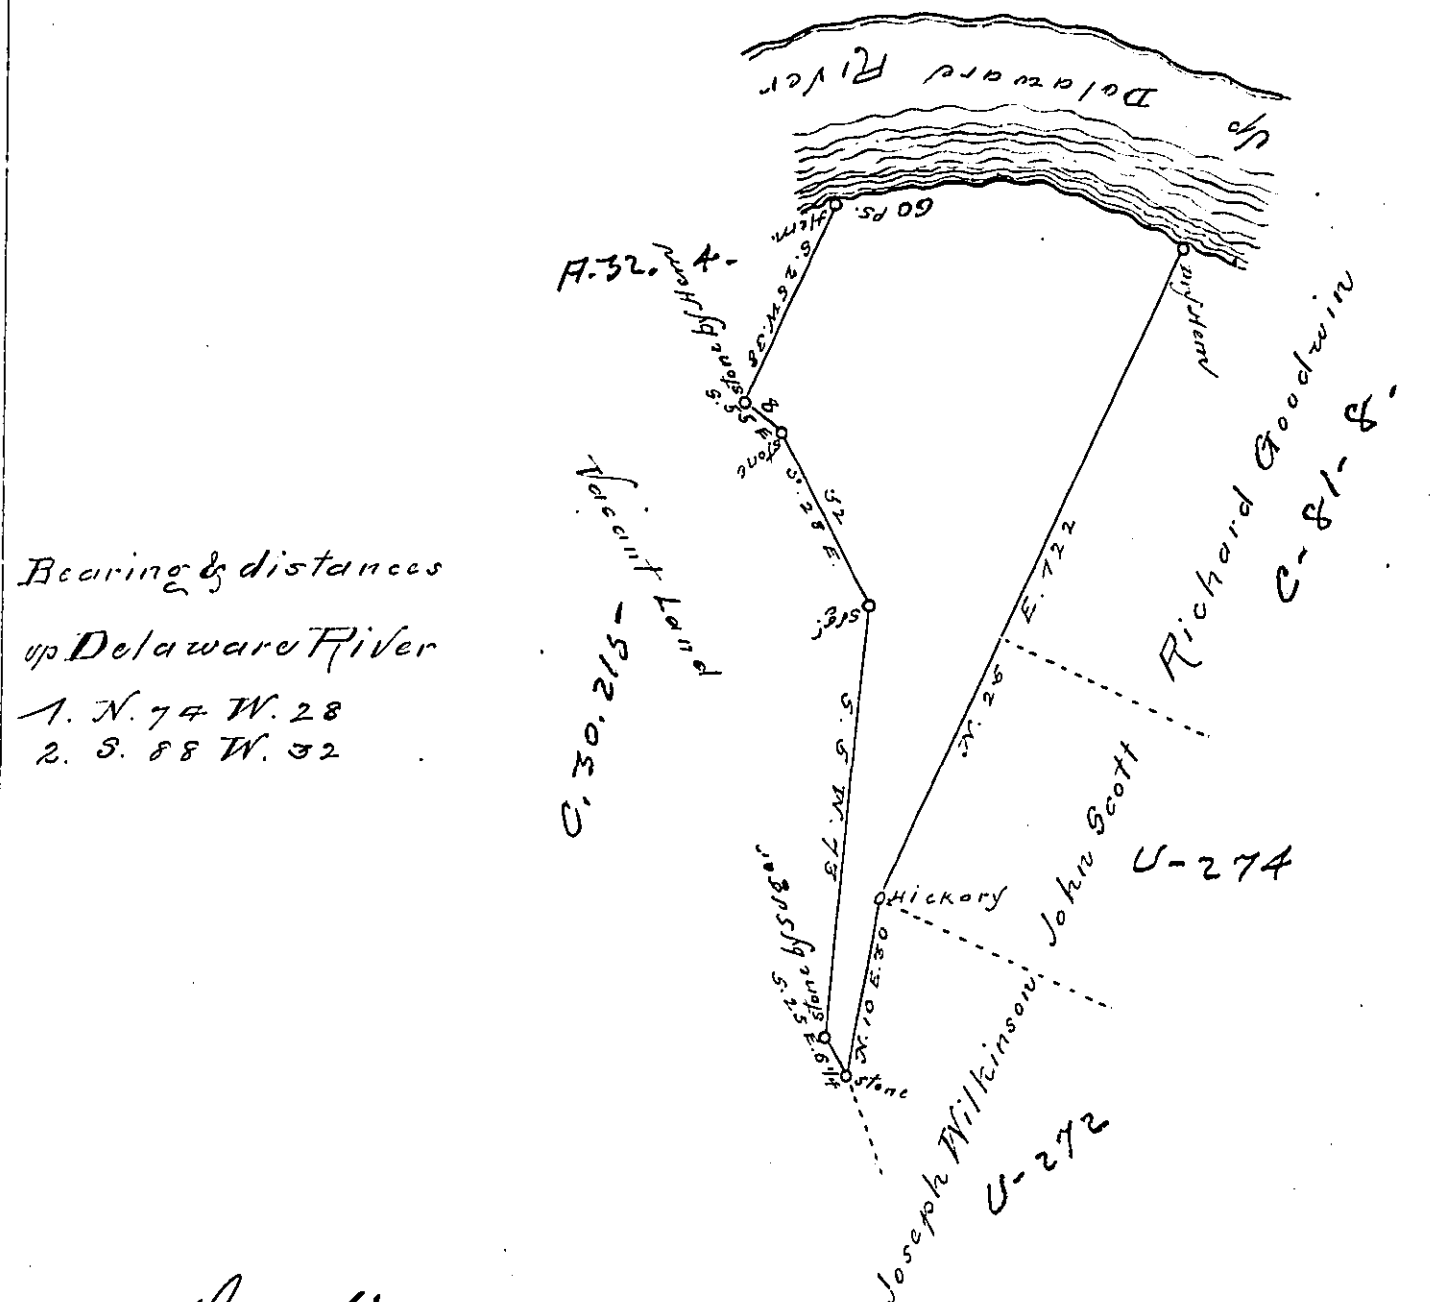 Up Delaware River
60 Ps.
Hem.
S. 26 W. 38
A. 32. 4.-
Stone by Hem
S. 55 E 8
Stone
S. 28 E. 32
Vacant Land
C. 30. 215-
S. 5 W. 73
Stone by Sugar
S. 25 E.
Stone
N. 10 E. 30
Hickory
N. 26 E. 122
Hem
Richard Goodwin
C- 81- 8.
John Scott
U-274
Joseph Wilkinson
U-272
Bearing & distances
up Delaware River
1. N. 74 W. 28
2. S. 88 W. 32